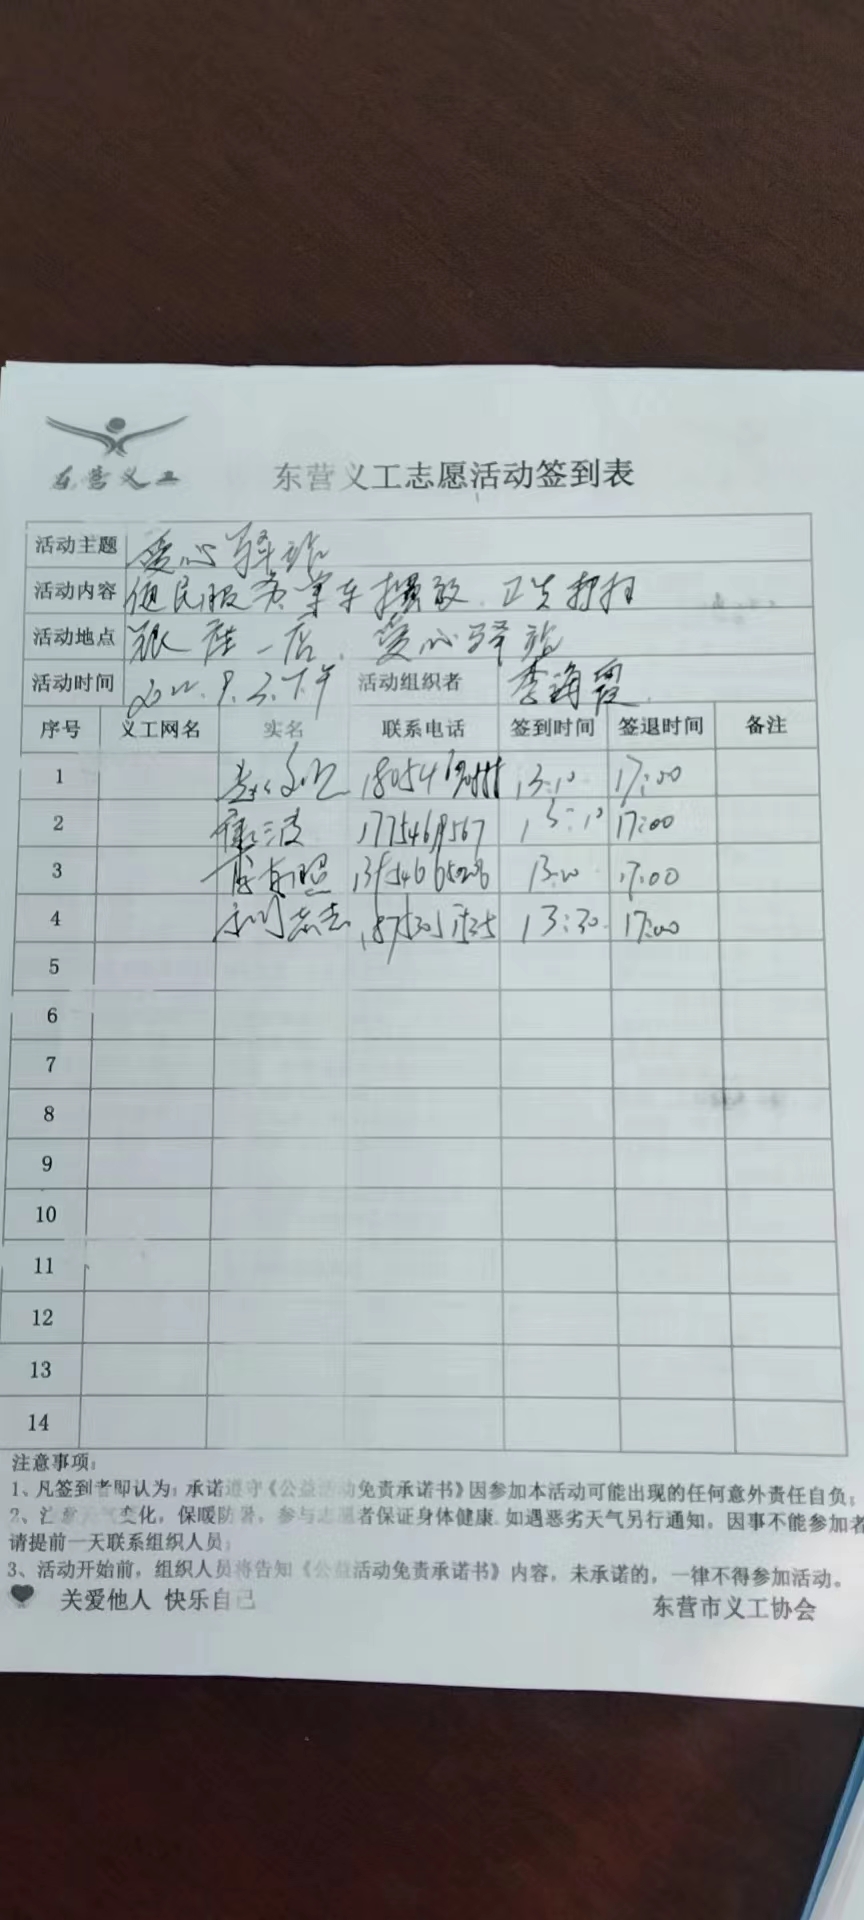 东营义工
东营义工志愿活动签到表
活动主题 爱心驿站
活动内容 便民服务 单车摆放 卫生打扫
活动地点 银座一店、爱心驿站
活动时间 2022.9.3.下午 活动组织者 李海霞
序号 义工网名 实名 联系电话 签到时间 签退时间 备注
1 13:10 17:00
2 波 13:10 17:00
3 17:00
4 13:30 17:00
5
6
7
8
9
10
11
12
13
14
注意事项:
1、凡签到者即认为:承诺遵守《公益活动免责承诺书》因参加本活动可能出现的任何意外责任自负;
2、注意天气变化,保暖防暑,参与志愿者保证身体健康.如遇恶劣天气另行通知,因事不能参加者
请提前一天联系组织人员;
3、活动开始前,组织人员将告知《公益活动免责承诺书》内容,未承诺的,一律不得参加活动。
关爱他人 快乐自己
东营市义工协会